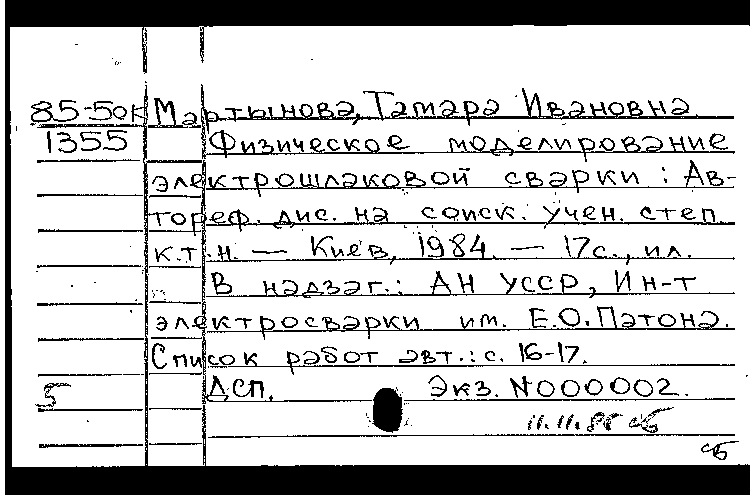 85-50к Мартынова, Тамара Ивановна
1355 Физическое моделирование
электрошлаковой сварки : Ав-
тореф. дис. на соиск. учен. степ.
к.т.н. — Киев, 1984. — 17с., ил.
В надзаг.: АН УССР, Ин-т
электросварки им. Е.О. Патона.
Список работ авт.: с. 16-17.
5 ДСП. Экз. N000002.
11.11.85 сб
сб